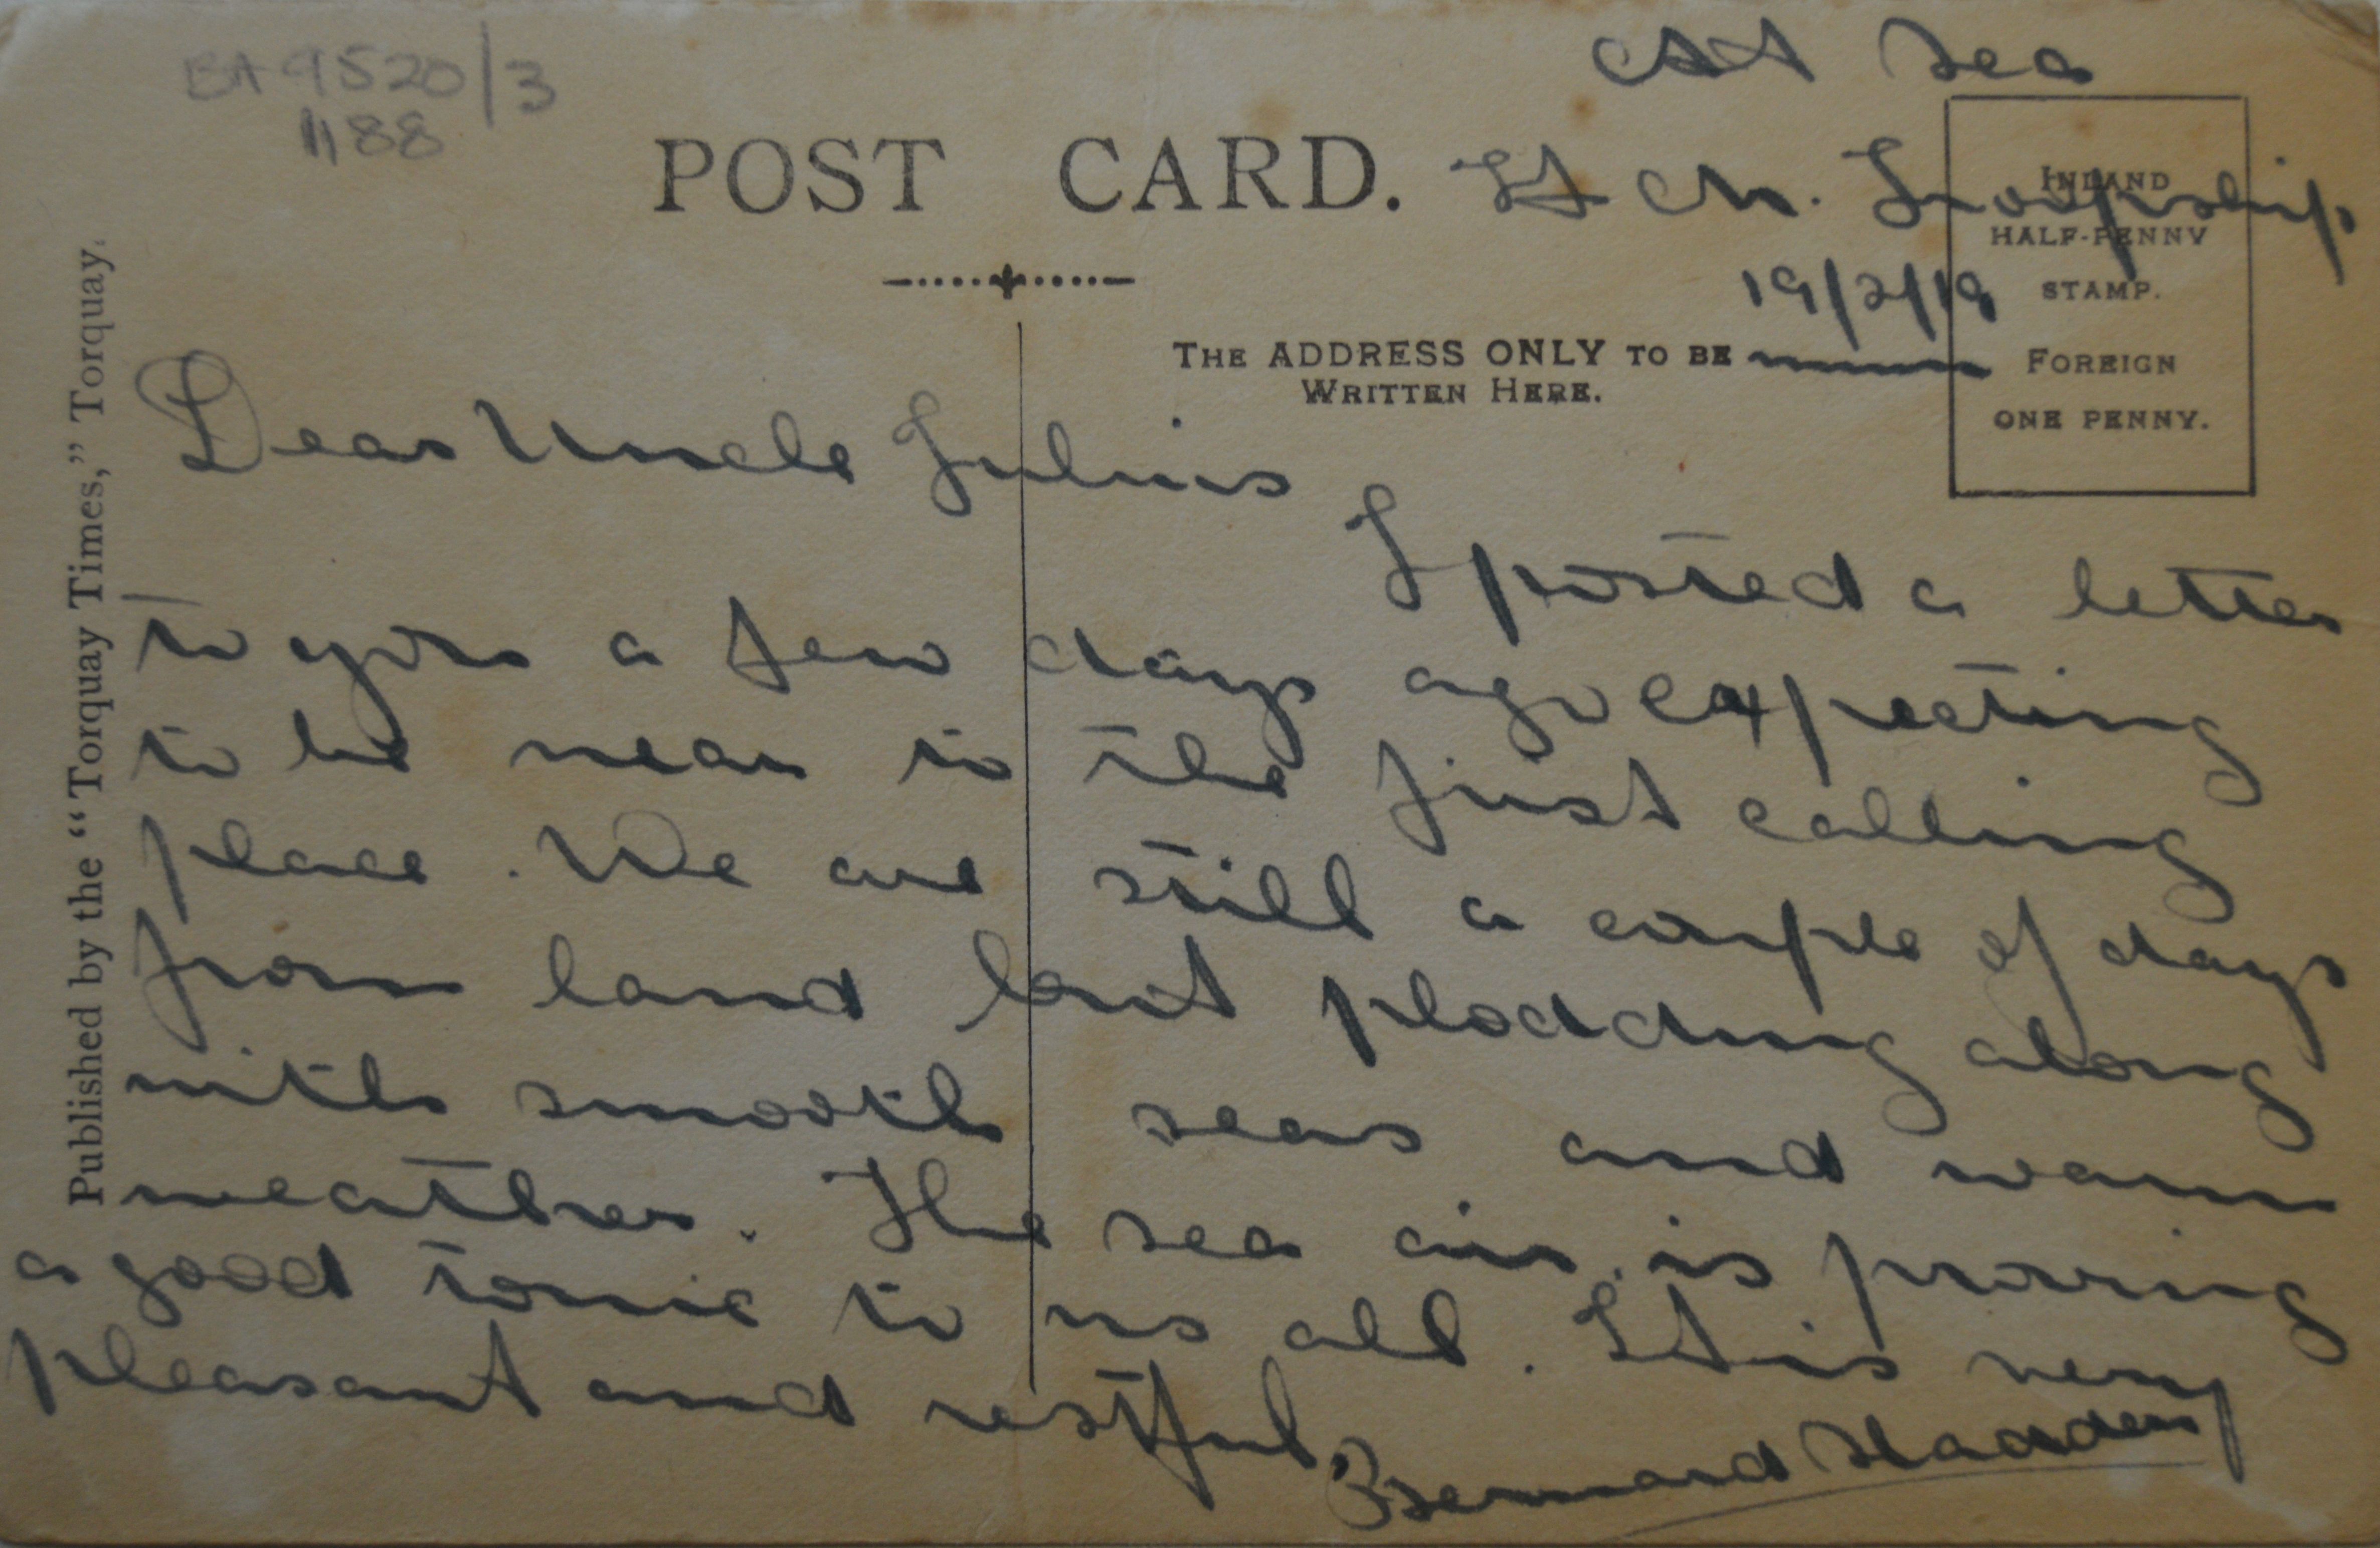 BA 9520/3
1188
At Sea
POST CARD.
H M. Troopship.
19/2/19
INLAND
HALF-PENNY
STAMP.
FOREIGN
ONE PENNY.
THE ADDRESS ONLY TO BE
WRITTEN HERE.
Published by the "Torquay Times," Torquay.
Dear Uncle Julius
I posted a letter
to you a few days ago expecting
to be near to the first calling
place. We are still a couple of days
from land but plodding along
with smooth seas and warm
weather. The sea air is proving
a good tonic to us all. It is very
pleasant and restful.
Bernard Hadden